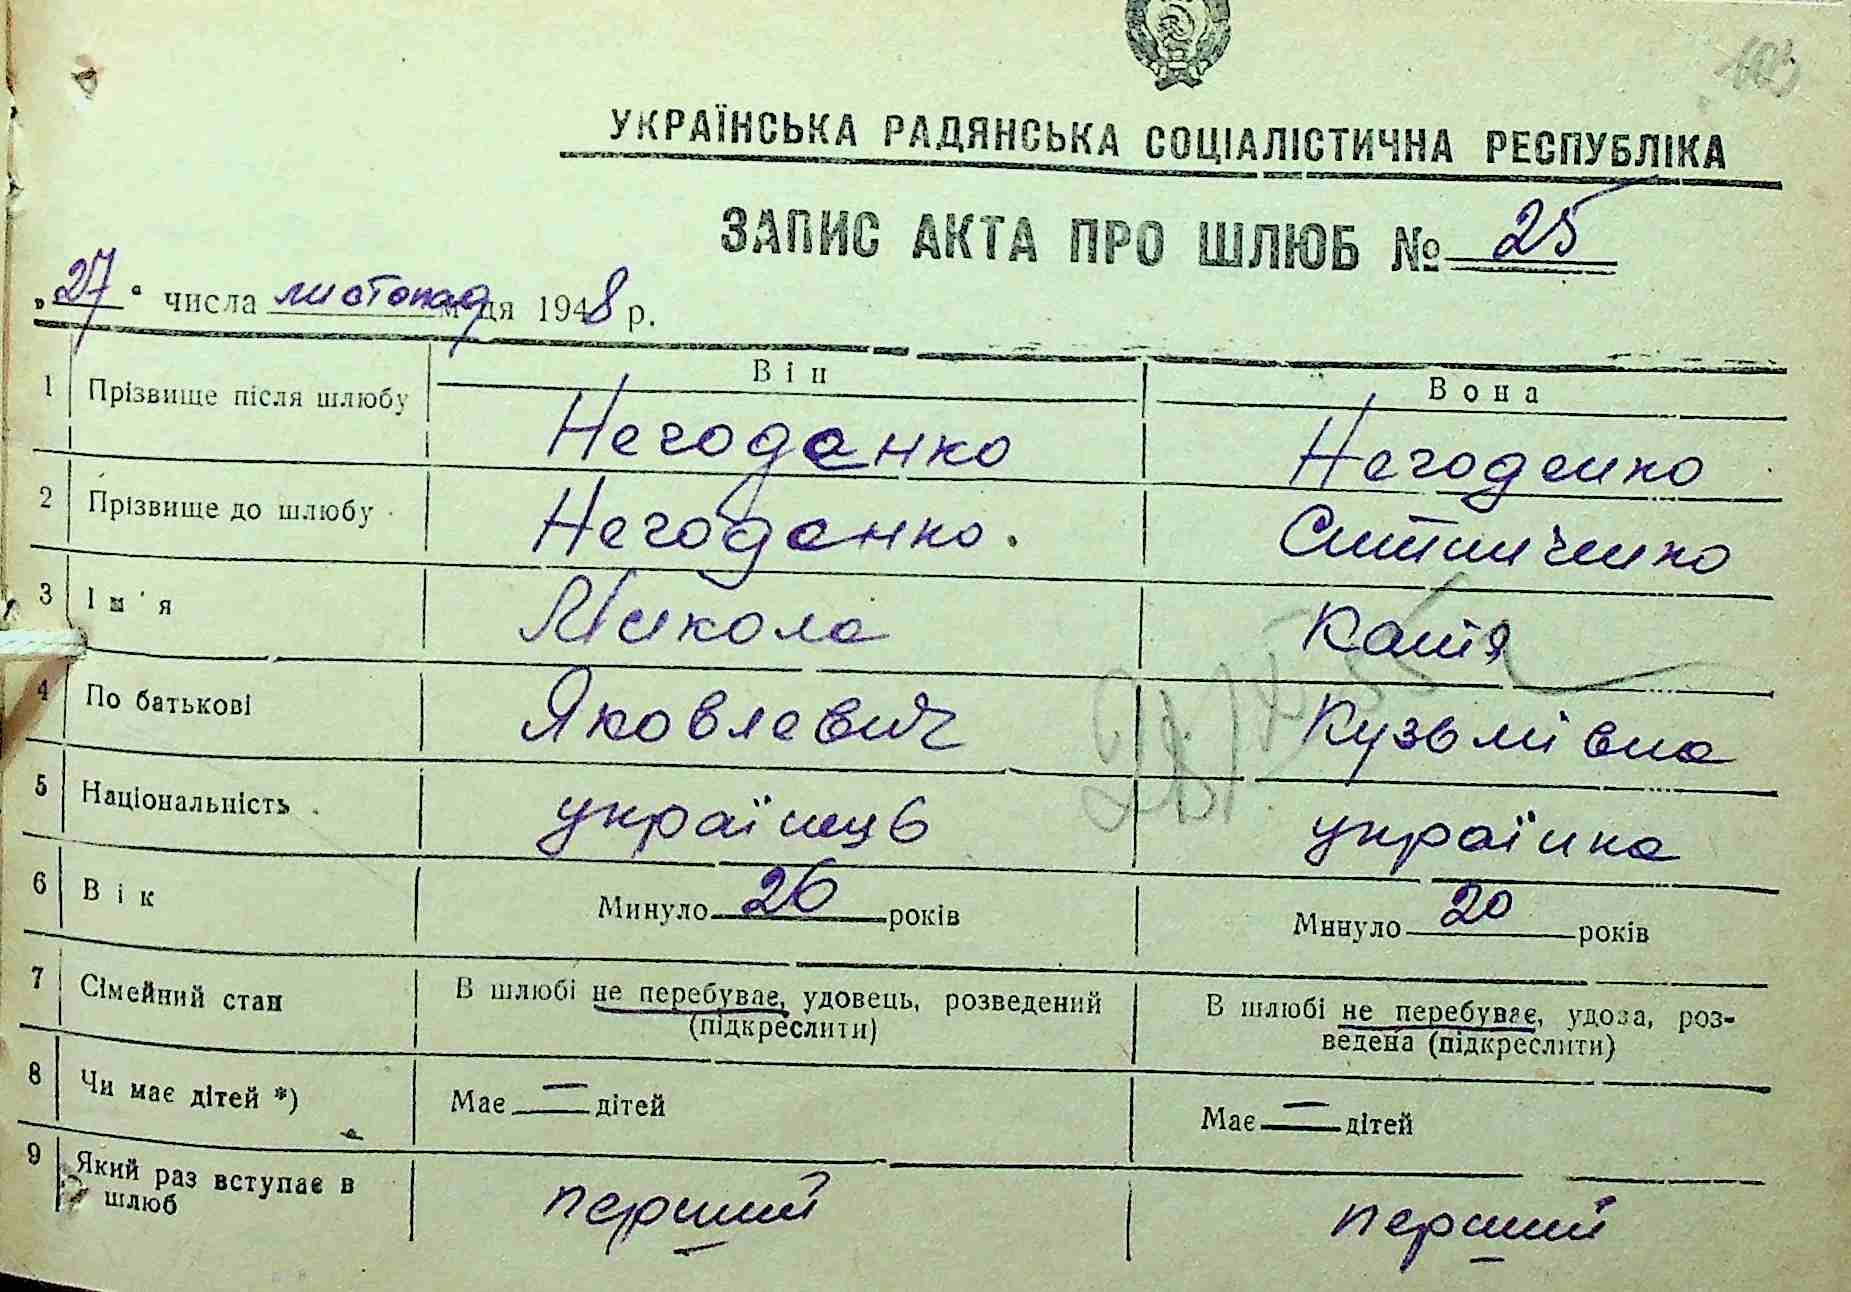 УКРАЇНСЬКА РАДЯНСЬКА СОЦІАЛІСТИЧНА РЕСПУБЛІКА
ЗАПИС АКТА ПРО ШЛЮБ № 25
„27“ числа листопад м-ця 1948 р.
Він Вона
1 Прізвище після шлюбу Негоденко Негоденко
2 Прізвище до шлюбу Негоденко. Ситниченко
3 Ім'я Микола Катя
4 По батькові Яковлевич Кузьмівна
5 Національність українець українка
6 Вік Минуло 26 років Минуло 20 років
7 Сімейний стан В шлюбі не перебуває, удовець, розведений (підкреслити) В шлюбі не перебуває, удова, роз-
ведена (підкреслити)
8 Чи має дітей *) Має — дітей Має — дітей
9 Який раз вступає в
шлюб перший перший